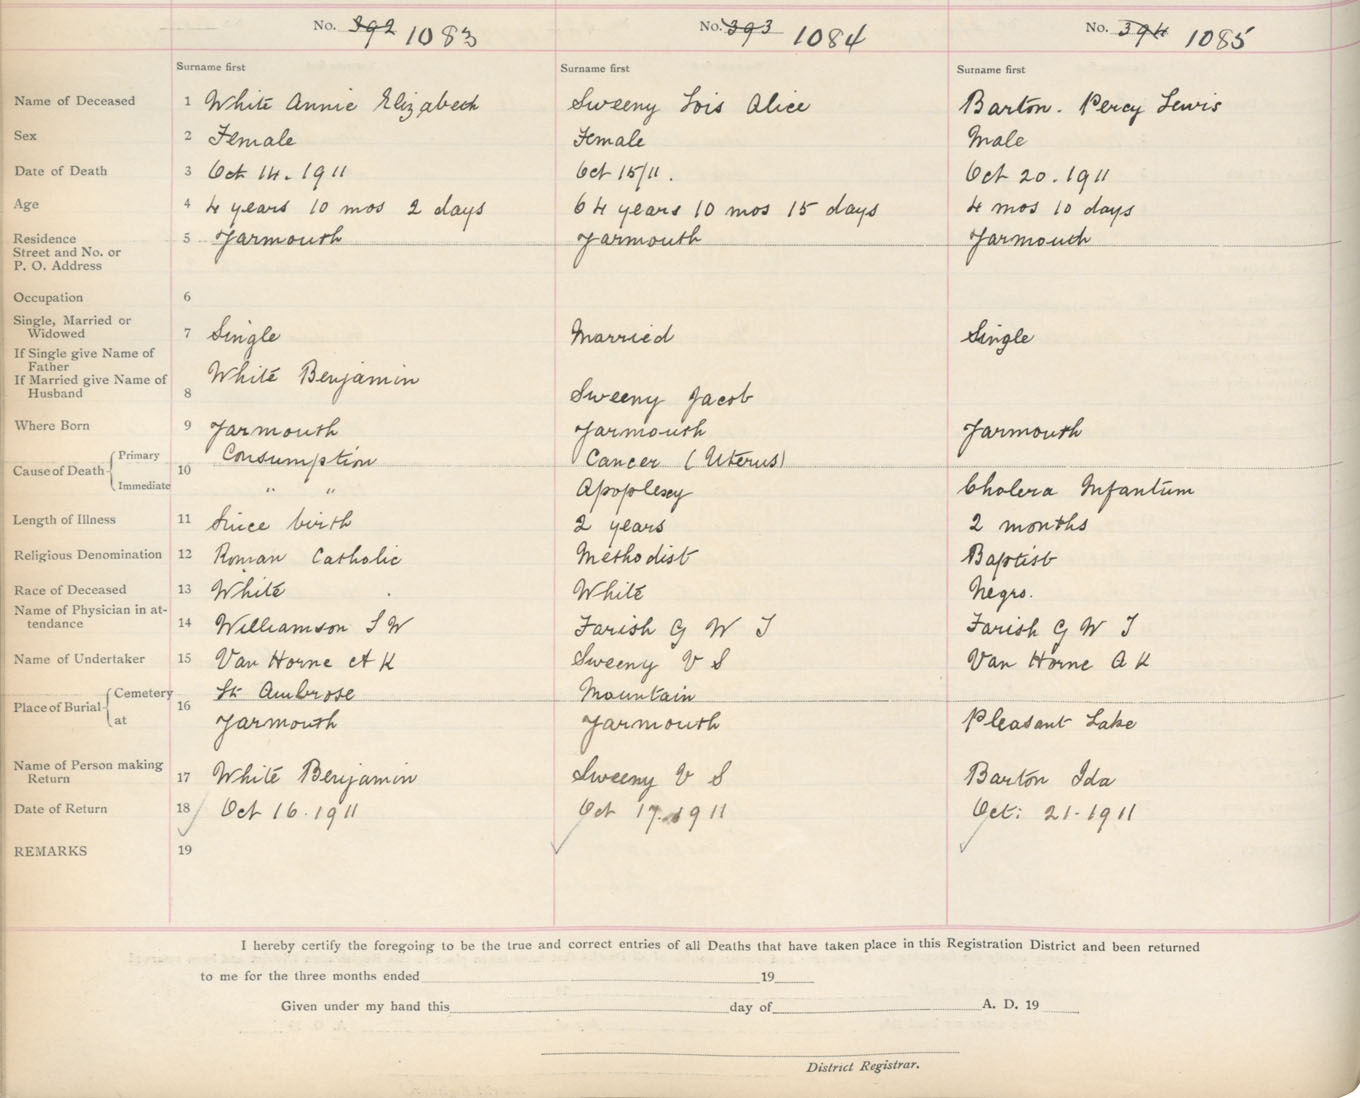 No. 392 1083 No. 393 1084 No. 394 1085
Surname first Surname first Surname first
Name of Deceased 1 White Annie Elizabeth Sweeny Lois Alice Barton. Percy Lewis
Sex 2 Female Female Male
Date of Death 3 Oct 14. 1911 Oct 15/11. Oct 20. 1911
Age 4 4 years 10 mos 2 days 64 years 10 mos 15 days 4 mos 10 days
Residence 5 Yarmouth Yarmouth Yarmouth
Street and No. or
P. O. Address
Occupation 6
Single, Married or
Widowed 7 Single Married Single
If Single give Name of
Father
White Benjamin
If Married give Name of
Husband 8 Sweeny Jacob
Where Born 9 Yarmouth Yarmouth Yarmouth
Primary Consumption Cancer (Uterus)
Cause of Death 10
Immediate " " Apoplexy Cholera Infantum
Length of Illness 11 Since birth 2 years 2 months
Religious Denomination 12 Roman Catholic Methodist Baptist
Race of Deceased 13 White White Negro.
Name of Physician in at-
tendance 14 Williamson S W Farish G W T Farish G W T
Name of Undertaker 15 Van Horne A K Sweeny V S Van Horne A K
Cemetery St Ambrose Mountain
Place of Burial 16
at Yarmouth Yarmouth Pleasant Lake
Name of Person making
Return 17 White Benjamin Sweeny V S Barton Ida
Date of Return 18 Oct 16. 1911 Oct 17. 1911 Oct: 21. 1911
REMARKS 19
I hereby certify the foregoing to be the true and correct entries of all Deaths that have taken place in this Registration District and been returned
to me for the three months ended 19
Given under my hand this day of A. D. 19
District Registrar.